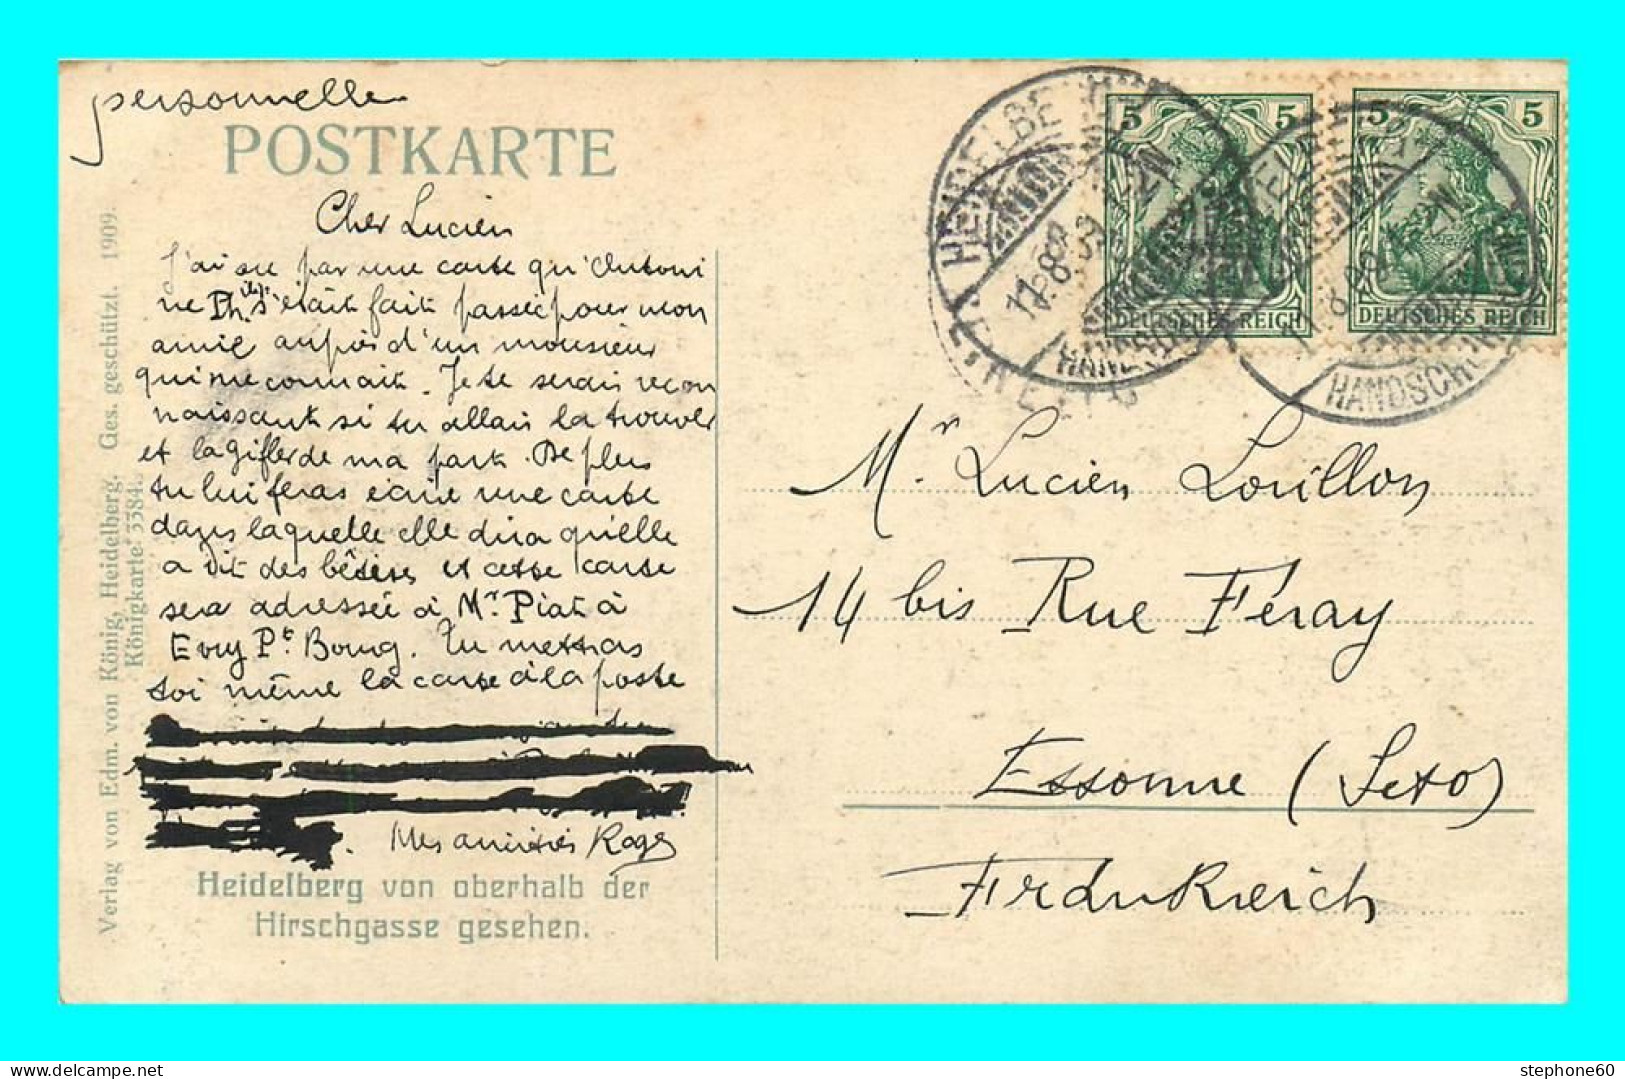 personnelle
POSTKARTE
Cher Lucien
J'ai su par une carte qu'Antoni
ne Ph. s'était fait passée pour mon
amie auprès d'un monsieur
qui me connait. Je te serais recon
naissant si tu allais la trouver
et la gifler de ma part. De plus
tu lui feras écrire une carte
dans laquelle elle dira qu'elle
a dit des bêtises et cette carte
sera adressée à Mr Piat à
Evry Pt Bourg. Tu mettras
toi même la carte à la poste
Mes amitiés Roger
Heidelberg von oberhalb der
Hirschgasse gesehen.
Verlag von Edm. von König, Heidelberg. Ges. geschützt. 1909.
Königkarte 3384.
5 5
DEUTSCHES REICH
5 5
DEUTSCHES REICH
HEIDELBE
11.8.09
HANDSCH
Mr Lucien Lorillon
14 bis Rue Féray
Essonne (Seto)
Frankreich
stephone60